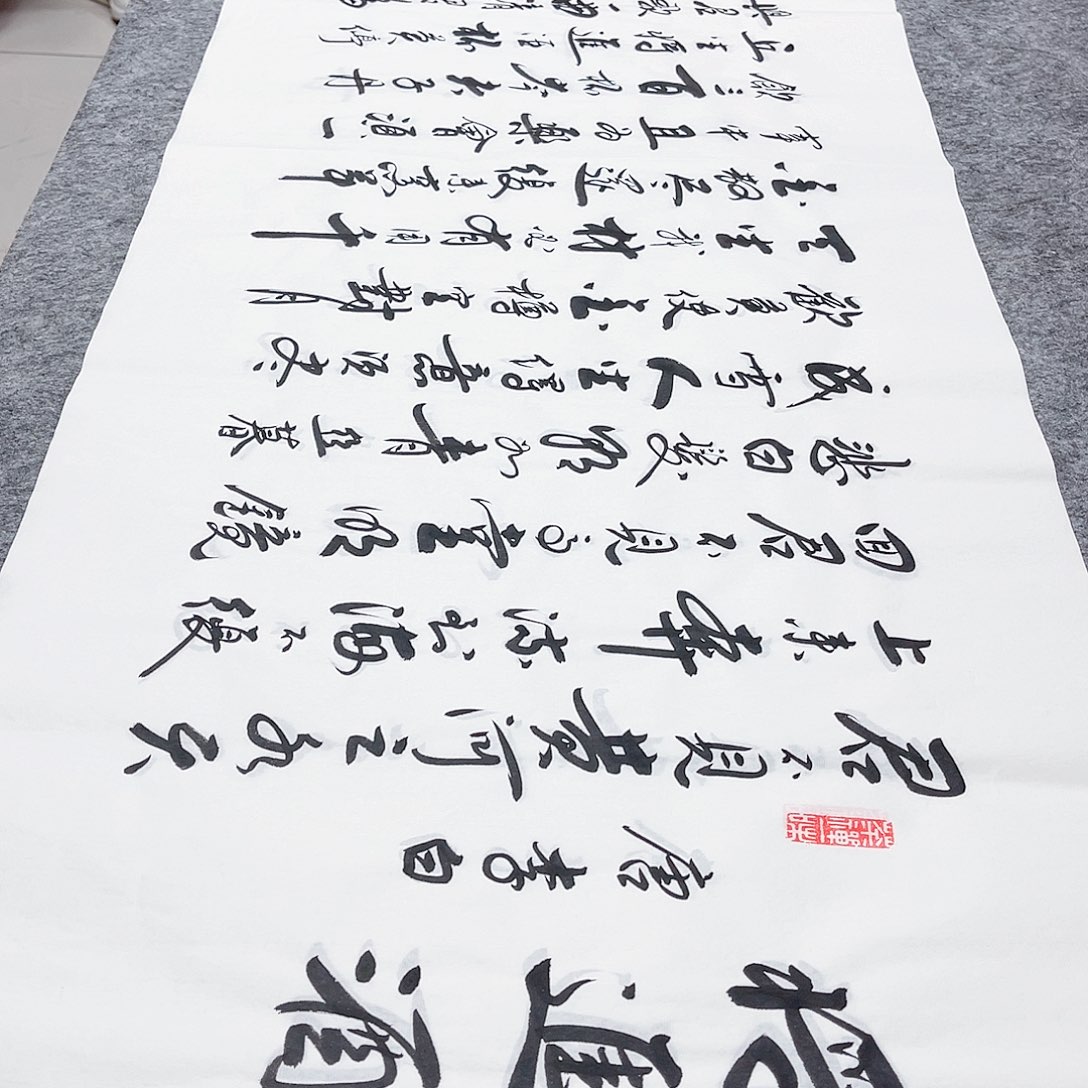 將進酒
唐李白
君不見黃河之水天
上來奔流到海不復
回君不見高堂明鏡
悲白髮朝如青絲暮
成雪人生得意須盡
歡莫使金樽空對月
天生我材必有用千
金散盡還復來烹羊
宰牛且為樂會須一
飲三百杯岑夫子丹
丘生將進酒杯莫停
與君歌一曲請君為